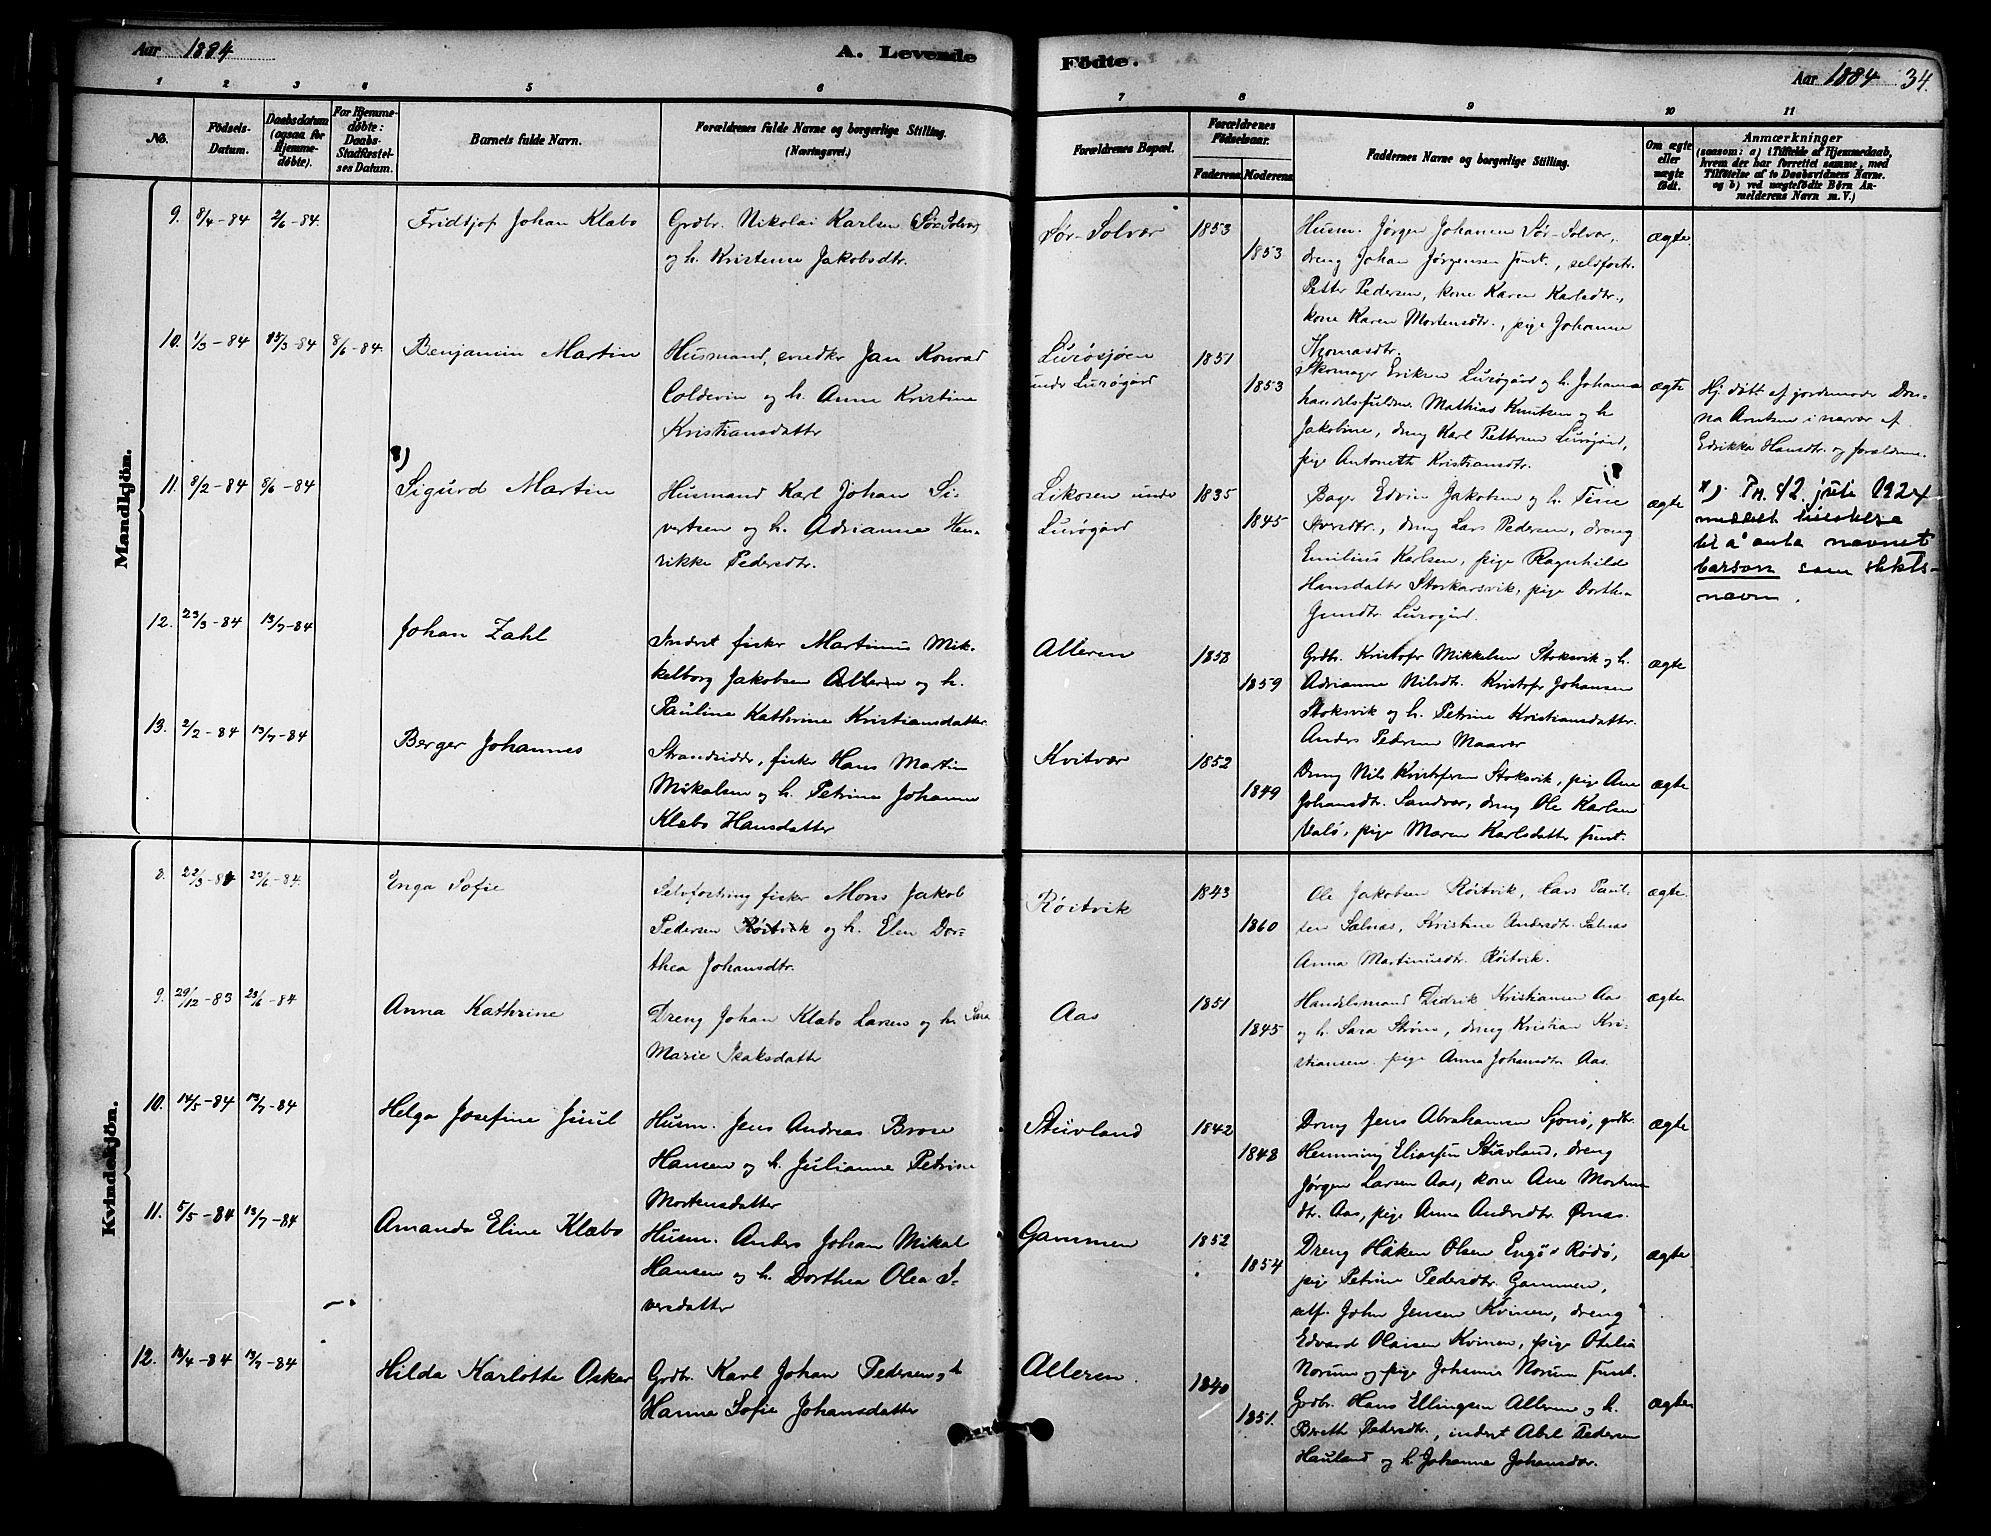 Aar 1884
A. Levende
Födte.
Aar 1884 34.
1 2 3 4 5 6 7 8 9 10 11
No.
Födsels-
Datum.
Daabsdatum
(ogsaa for
Hjemme-
døbte).
For Hjemme-
døbte:
Daabs-
Stadfæstel-
ses Datum.
Barnets fulde Navn.
Forældrenes fulde Navne og borgerlige Stilling.
(Næringsvei.)
Forældrenes Bopæl.
Forældrenes
Födselsaar.
Faderens. Moderens.
Faddernes Navne og borgerlige Stilling.
Om ægte
eller
uægte
födt.
Anmærkninger
(saasom: a) i Tilfælde af Hjemmedaab,
hvem der har forrettet samme, med
Tilföielse af to Daabsvidners Navne.
og b) ved uægtefödte Börn An-
melderens Navn m. V.)
Mandkjön.
9. 8/4-84 2/6-84. Fridtjof Johan Klæbo
Grdbr. Nikolai Karlsen Sør-Solvær
og h. Kristense Jakobsdtr.
Sør-Solvær 1853
1853
Husm. Jørgen Johansen Sør-Solvær,
dreng Johan Jørgensen smst., selvfostr.
Petter Pedersen, kone Karen Karlsdtr.,
kone Karen Mortensdtr., pige Johanne
Thomasdtr.
ægte
10. 1/3-84 15/3-84 8/6-84. Benjamin Martin
Husmand, snedker Jan Konrad
Coldevin og h. Anne Kristine
Kristiansdatter
Lurøsjøen
under Lurøgård
1851
1853
Skomager Eriksen Lurøgård og h. Johanna
handelsfuldm. Mathias Knutsen og h.
Jakobine, dreng Karl Pettersen Lurøgård,
pige Antoneth Kristiansdtr.
ægte
Hj. døbt af jordemoder Don-
na Arntsen i nærvær af
Edrikke Hansdtr. og forældrene.
11. 8/2-84 8/6-84 *) Sigurd Martin
Husmand Karl Johan Si-
vertsen og h. Adrianne Hen-
rikke Pedersdtr.
Likosen under
Lurøgård
1835
1845
Bager Edvin Jakobsen og h. Fine
Iversdtr., dreng Lars Pedersen, dreng
Emilius Karlsen, pige Ragnhilde
Hansdatter Storkorsvik, pige Dorthea
Gundtr. Lurøgård.
ægte
*)
navnet
Carson som slekts-
navn.
12. 23/3-84 13/7-84 Johan Zahl
Inderst fisker Martinus Mik-
kelborg Jakobsen Alleren og h.
Pauline Kathrine Kristiansdatter.
Alleren 1858
1859
Grdbr. Kristofer Mikkelsen Stoksvik og h.
Adrianne Nilsdtr. Kristofer Johansen
Stoksvik og h. Petrine Kristiansdatter.
Anders Pedersen Maavær
ægte
13. 2/2-84 13/7-84 Berger Johannes
Strandsidder, fisker Hans Martin
Mikalsen og h. Petrine Johanne
Klæbo Hansdatter
Kvitvær 1852
1849
Dreng Nils Kristofersen Stoksvik, pige Ane
Johansdtr. Sandvær, dreng Ole Karlsen
Valø, pige Maren Karlsdatter smst.
ægte
Kvindekjön.
8. 22/3-84 23/6-84. Enga Sofie
Selvfostring fisker Mons Jakob
Pedersen Røitvik og h. Elen Dor-
thea Johansdtr.
Røitvik 1843
1860
Ole Jakobsen Røitvik, Lars Paul-
sen Selnæs, Kristine Andersdtr. Selnæs
Anna Martinusdtr. Røitvik.
ægte.
9. 29/12-83 23/6-84 Anna Kathrine
Dreng Johan Klæbo Larsen og h. Sara
Marie Isaksdatter
Aas 1851
1845
Handelsmand Didrik Kristiansen Aas
og h. Sara Strøm, dreng Kristian Kri-
stiansen. pige Anna Johansdtr. Aas.
ægte
10. 14/5-84 13/7-84 Helga Josefine Juul
Husm. Jens Andreas Brose
Hansen og h. Julianne Petrine
Mortensdatter
Stuvland 1842
1848
Dreng Jens Abrahamsen Sjonø, grdbr.
Henning Eliassen Stuvland, dreng
Jørgen Larsen Aas, kone Ane Morten
dtr. Aas, pige Anna Andersdtr. Ørnæs.
ægte
11. 5/5-84 13/7-84 Amanda Eline Klæbo
Husm. Anders Johan Mikal
Hansen og h. Dorthea Olea I-
versdatter
Gammen 1852
1854
Dreng Håken Olsen Engø i Rødø,
pige Petrine Pedersdtr. Gammen,
self. John Jensen Kvinen, dreng
Edvard Olaisen Kvinen, pige Othelia
Norum og pige Johanna Norum smst.
ægte
12. 13/4-84 13/7-84 Hilda Karlotte Oskar
Grdbr. Karl Johan Pedersen og h
Hanna Sofie Johansdatter
Alleren. 1840
1851.
Grdbr. Hans Ellingsen Alleren og h.
Bereth Pedersdtr., inderst Abel Pedersen
Hauland og h. Johanna Johansdtr.
ægte